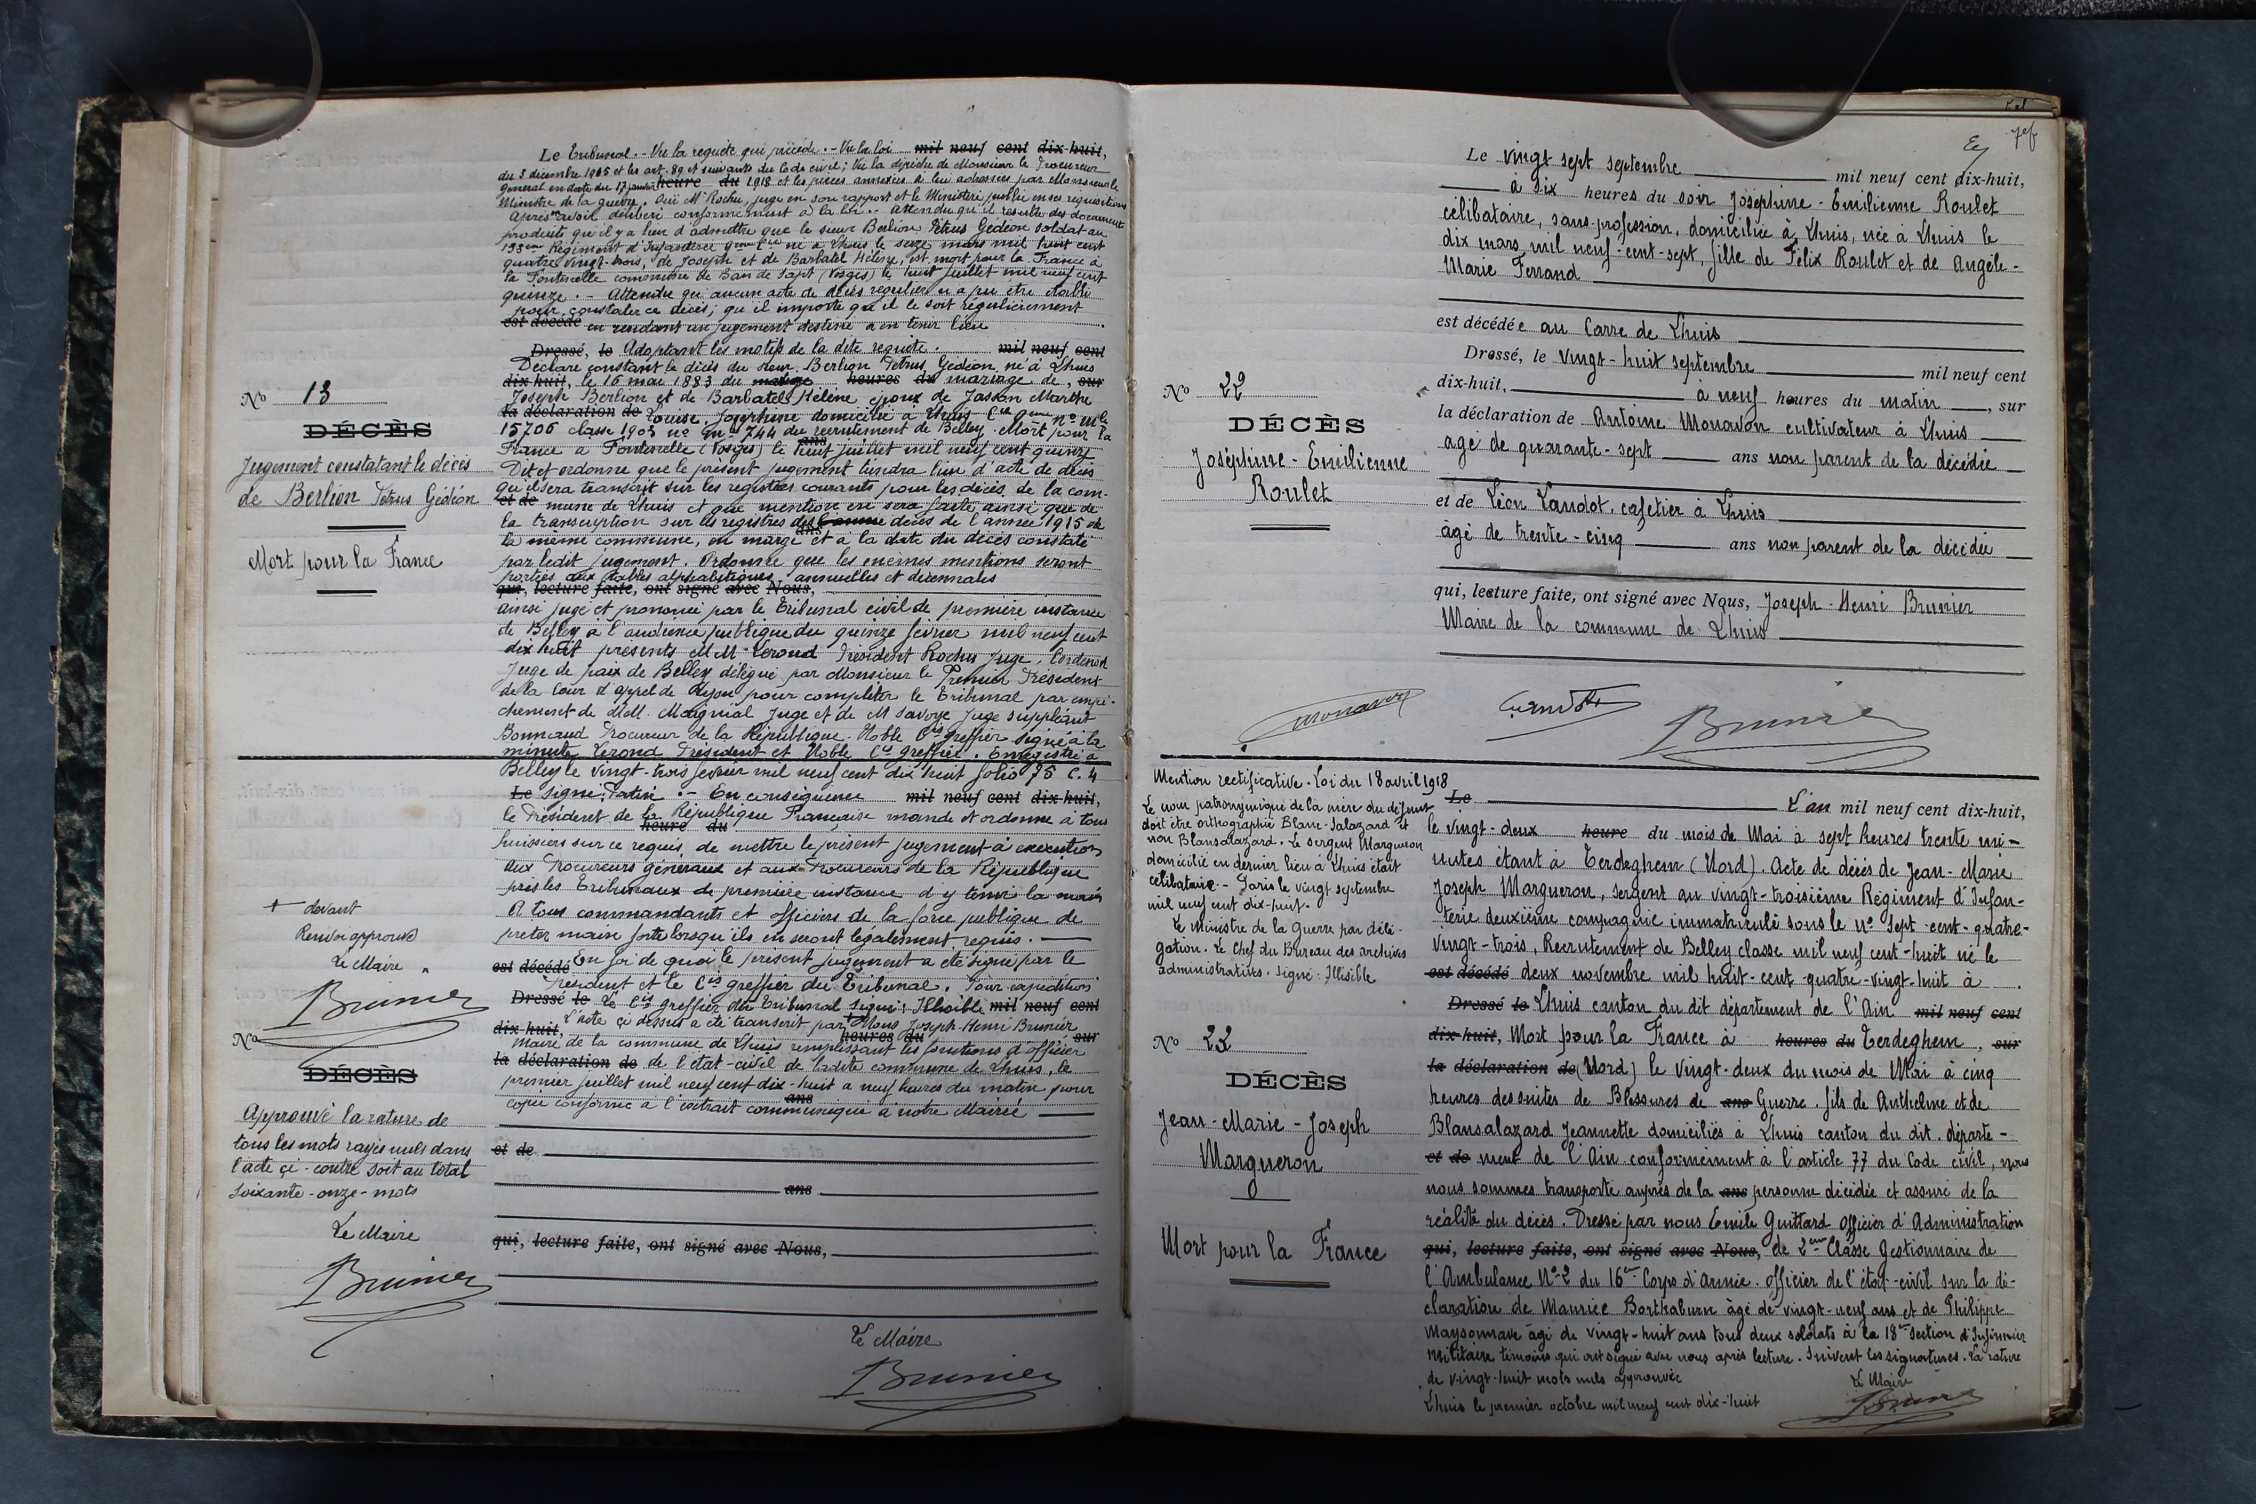 Le Tribunal .- Vu la requête qui précède .- Vu la loi mil neuf cent dix-huit,
du 3 décembre 1915 et les art. 89 et suivants du Code civil ; Vu la dépêche de Monsieur le Procureur
général en date du 17 janvier heure du 1918 et les pièces annexées à lui adressées par Monsieur le
Ministre de la guerre. Ouï Mr Rochu, juge en son rapport et le Ministère public en ses réquisitions
Après en avoir délibéré conformément à la loi .- Attendu qu'il résulte des documents
produits qu'il y a lieu d'admettre que le sieur Berlion Pétrus Gédéon soldat au
133ème Régiment d'Infanterie 9ème Cie né à Lhuis le seize mars mil huit cent
quatre vingt-trois, de Joseph et de Barbatel Hélène, est mort pour la France à
la Fontenelle commune de Ban de Sapt (Vosges) le huit juillet mil neuf cent
quinze .- Attendu qu'aucun acte de décès régulier n'a pu être établi
pour constater ce décès, qu'il importe qu'il le soit régulièrement
est décédé en rendant un jugement destiné à en tenir lieu
Dressé, le Adoptant les motifs de la dite requête. mil neuf cent
Déclare constant le décès du sieur Berlion Pétrus Gédéon, né à Lhuis
dix-huit, le 16 mai 1883 du mariage heures du mariage de, sur
Joseph Berlion et de Barbatel Hélène époux de Jasson Marthe
la déclaration de Louise Joséphine domicilié à Lhuis Cie 9ème No Mle
15706 classe 1903 no Mle 744 du recrutement de Belley. Mort pour la
ans
France à Fontenelle (Vosges) le huit juillet mil neuf cent quinze
Dit et ordonne que le présent jugement tiendra lieu d'acte de décès
qu'il sera transcrit sur les registres courants pour les décès de la com-
et de mune de Lhuis et que mention en sera faite ainsi que de
la transcription sur les registres des l'année décès de l'année 1915 de
ans
la même commune, en marge et à la date du décès constaté
par ledit jugement. Ordonne que les mêmes mentions seront
portées aux tables alphabétiques annuelles et décennales
qui, lecture faite, ont signé avec Nous,
ainsi jugé et prononcé par le Tribunal civil de première instance
de Belley à l'audience publique du quinze février mil neuf cent
dix huit présents MM. Lerond Président Rochu Juge, Cordenod
Juge de paix de Belley délégué par Monsieur le Premier Président
de la Cour d'appel de Lyon pour compléter le Tribunal par empê-
chement de MM. Magnial Juge et de M Savoye Juge suppléant
Bonnaud Procureur de la République. Noble Cis greffier signé à la
minute Lerond Président et Noble Cis greffier. Enregistré à
Belley le vingt-trois février mil neuf cent dix huit folio 75 C. 4
Le signé: Patin .- En conséquence mil neuf cent dix-huit,
le Président de la République Française mande et ordonne à tous
heure du
huissiers sur ce requis, de mettre le présent jugement à exécution
aux Procureurs généraux et aux Procureurs de la République
près les Tribunaux de première instance d'y tenir la main
A tous commandants et officiers de la force publique de
prêter main forte lorsqu'ils en seront légalement requis.
En foi de quoi le présent jugement a été signé par le
est décédé
Président et le Cis greffier du Tribunal. Pour expédition
Dressé le Le Cis greffier du Tribunal signé: Illisible mil neuf cent
L'acte çi dessus a été transcrit par + Nous Joseph Henri Brunier
dix-huit, heures du sur
Maire de la commune de Lhuis remplissant les fonctions d'officier
la déclaration de de l'état-civil de ladite commune de Lhuis, le
premier juillet mil neuf cent dix-huit à neuf heures du matin pour
ans
copie conforme à l'extrait communiqué à notre Mairie
et de
ans
qui, lecture faite, ont signé avec Nous,
Le Maire
Brunier
No 13
DÉCÈS
Jugement constatant le décès
de Berlion Pétrus Gédéon
Mort pour la France
+ devant
Renvoi approuvé
Le Maire
Brunier
No
DÉCÈS
Approuvé la rature de
tous les mots rayés nuls dans
l'acte çi-contre soit au total
soixante-onze-mots
Le Maire
Brunier
Le vingt sept septembre mil neuf cent dix-huit,
à six heures du soir Joséphine-Emilienne Roulet
célibataire, sans profession, domiciliée à Lhuis, née à Lhuis le
dix mars mil neuf-cent-sept, fille de Félix Roulet et de Angèle-
Marie Ferrand
est décédée au Carre de Lhuis
Dressé, le vingt-huit septembre mil neuf cent
dix-huit, à neuf heures du matin, sur
la déclaration de Antoine Monavon cultivateur à Lhuis
agé de quarante-sept ans non parent de la décédée
et de Léon Landot, cafetier à Lhuis
âgé de trente-cinq ans non parent de la décédée
qui, lecture faite, ont signé avec Nous, Joseph-Henri Brunier
Maire de la commune de Lhuis
Monavon
Brunier
No 22
DÉCÈS
Joséphine-Emilienne
Roulet
Mention rectificative. Loi du 18 avril 1918
Le nom patronymique de la mère du défunt
doit être orthographié Blanc-Salazard et
non Blansalazard. Le sergent Margueron
domicilié en dernier lieu à Lhuis était
célibataire - Paris le vingt septembre
mil neuf cent dix-huit.
Le Ministre de la Guerre par délé-
gation. Le Chef du Bureau des archives
administratives. Signé: Illisible
No 23
DÉCÈS
Jean-Marie-Joseph
Margueron
Mort pour la France
Le L'an mil neuf cent dix-huit,
le vingt-deux heure du mois de Mai à sept heures trente mi-
nutes étant à Terdeghem (Nord). Acte de décès de Jean-Marie
Joseph Margueron, sergent au vingt-troisième Régiment d'Infan-
terie deuxième compagnie immatriculé sous le no sept-cent-quatre-
vingt-trois, Recrutement de Belley classe mil neuf cent-huit né le
est décédé deux novembre mil huit-cent-quatre-vingt-huit à
Dressé le Lhuis canton du dit département de l'Ain mil neuf cent
dix-huit, Mort pour la France à heures du Terdeghem, sur
la déclaration de (Nord) le vingt-deux du mois de Mai à cinq
heures des suites de Blessures de ans Guerre. fils de Anthelme et de
Blansalazard Jeannette domiciliés à Lhuis canton du dit. départe-
et de ment de l'Ain conformément à l'article 77 du Code civil, nous
nous sommes transporté auprès de la ans personne décédée et assuré de la
réalité du décès. Dressé par nous Emile Guittard officier d'Administration
qui, lecture faite, ont signé avec Nous, de 2ème Classe Gestionnaire de
l'Ambulance No 2 du 16e Corps d'Armée. officier de l'état-civil sur la dé-
claration de Maurice Borthaburn âgé de vingt-neuf ans et de Philippe
Maysonnave âgé de vingt-huit ans tous deux soldats à la 18e Section d'Infirmier
militaire témoins qui ont signé avec nous après lecture. Suivent les signatures. La rature
de vingt-huit mots nuls approuvée
Le Maire
Lhuis le premier octobre mil neuf cent dix-huit
Brunier